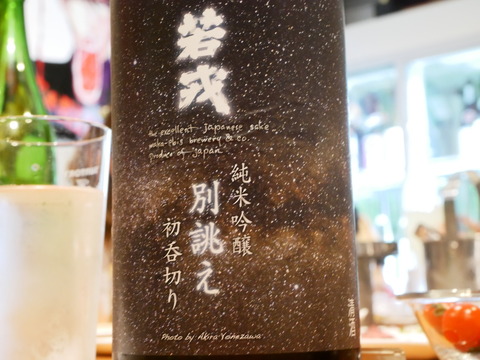 若戎
the excellent japanese sake
waka-ebis brewery & co.
product of japan
純米吟醸
別誂え
初呑切り
Photo by Akira Yonezawa